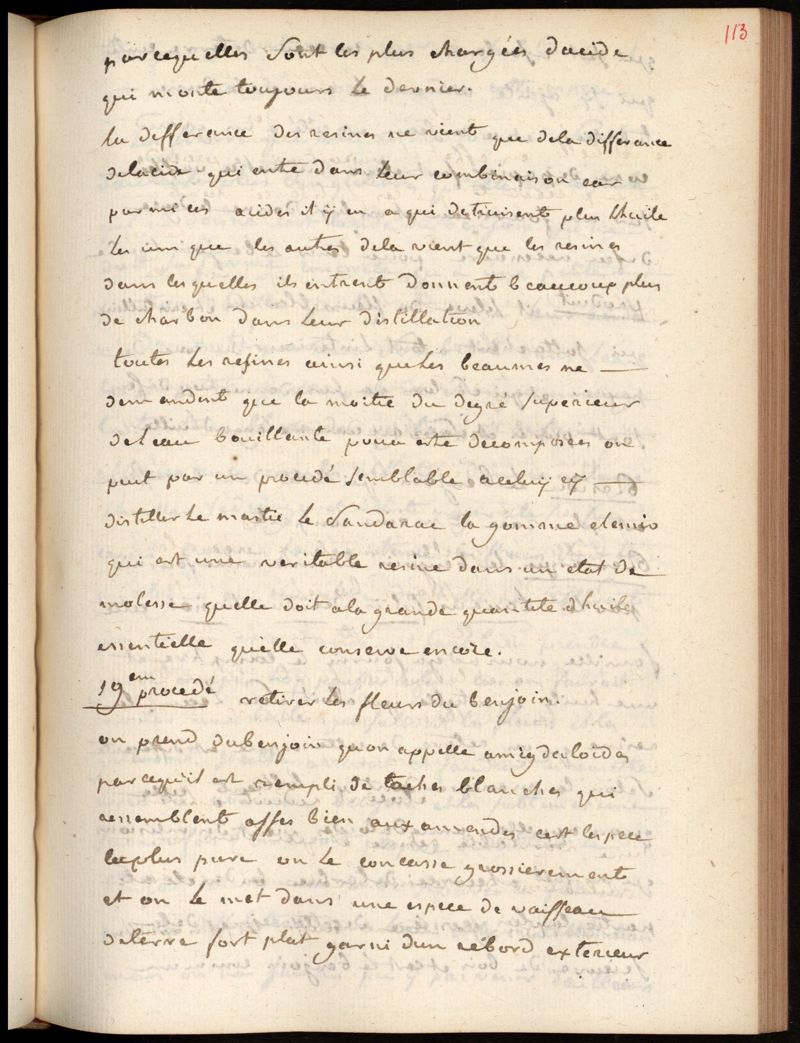 113
parcequelles sont les plus chargées dacide
qui monte toujours le dernier.
la differance des resines ne vient que dela differance
delacide qui entre dans leur combinaison car
parmi ces acides il y en a qui detruisent plus lhuile
les uns que les autres dela vient que les resines
dans lesquelles ils entrent donnent beaucoup plus
de charbon dans leur distillation
toutes les resines ainsi que les beaumes ne
demandent que la moitie du degre superieur
deleau bouillante pour estre decomposées on
peut par un procedé semblable a celuy cy
distiller le mastic le sandarac la gomme elemi
qui est une veritable resine dans un etat de
molesse quelle doit a la grande quantite dhuile
essentielle qu'elle conserve encore.
19em procedé retirer les fleurs du benjoin.
on prend dubenjoin quon appelle amigdaloides
parcequil est rempli de taches blanches qui
ressemblent assés bien aux amendes cest lespece
la plus pure on le concasse grossierement
et on le met dans une espece de vaisseau
deterre fort plat garni dun rebord exterieur